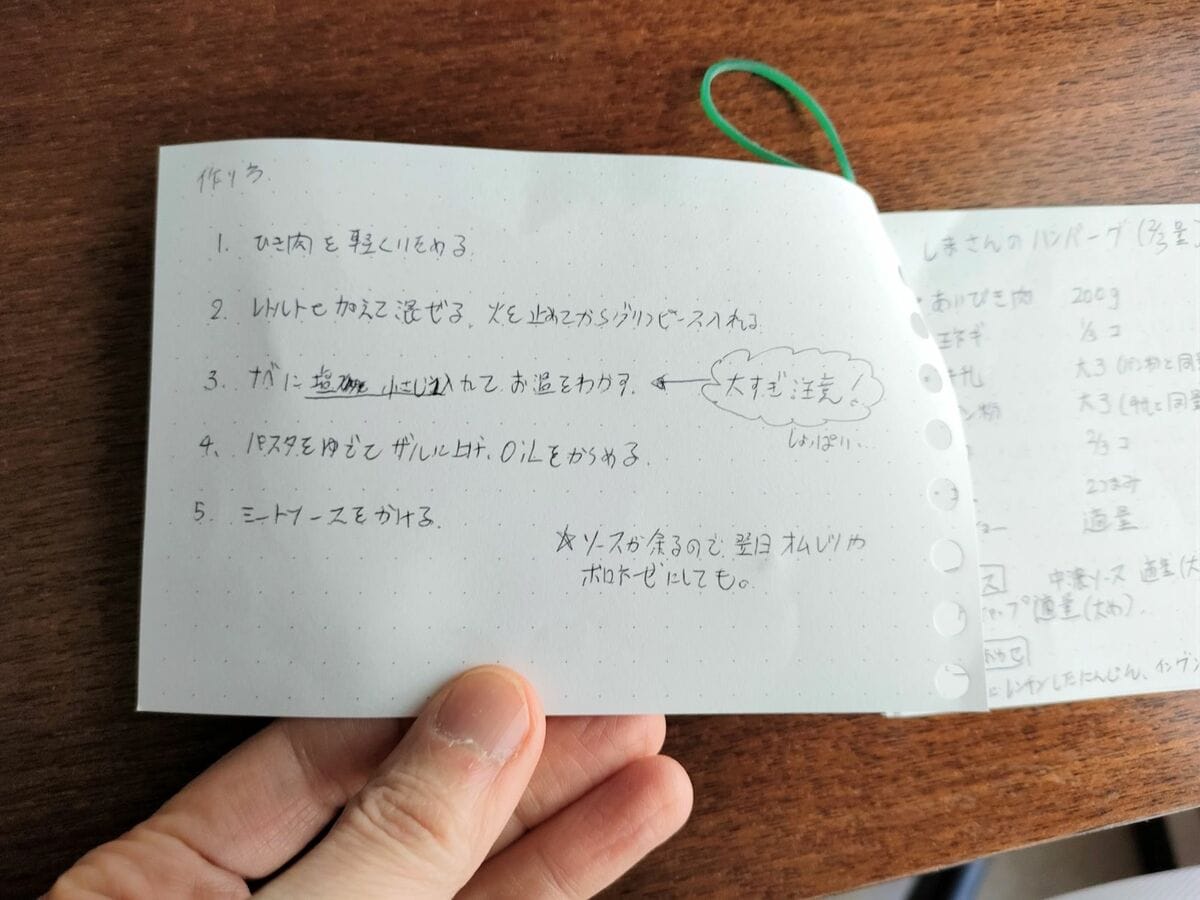 作り方
1. ひき肉を軽くいためる
2. レトルトを加えて混ぜる。火を止めてからグリンピース入れる
3. ナベに塩 小さじ 入れて お湯をわかす。
大すぎ注意!
しょっぱい…
4. パスタをゆでて ザルに上げ、OiLをからめる
5. ミートソースをかける。
☆ソースが余るので翌日 オムレツや
ボロネーゼにしても。
しまさんのハンバーグ (2/3量
あいびき肉 200g
玉ネギ 1/3コ
牛乳 大3 (パン粉と同量
ン粉 大3 (牛乳と同量
2/3コ
2つまみ
適量
ス 中濃ソース 適量 (大
チャップ 適量 (大め).
にレンチンしたにんじん、インゲン